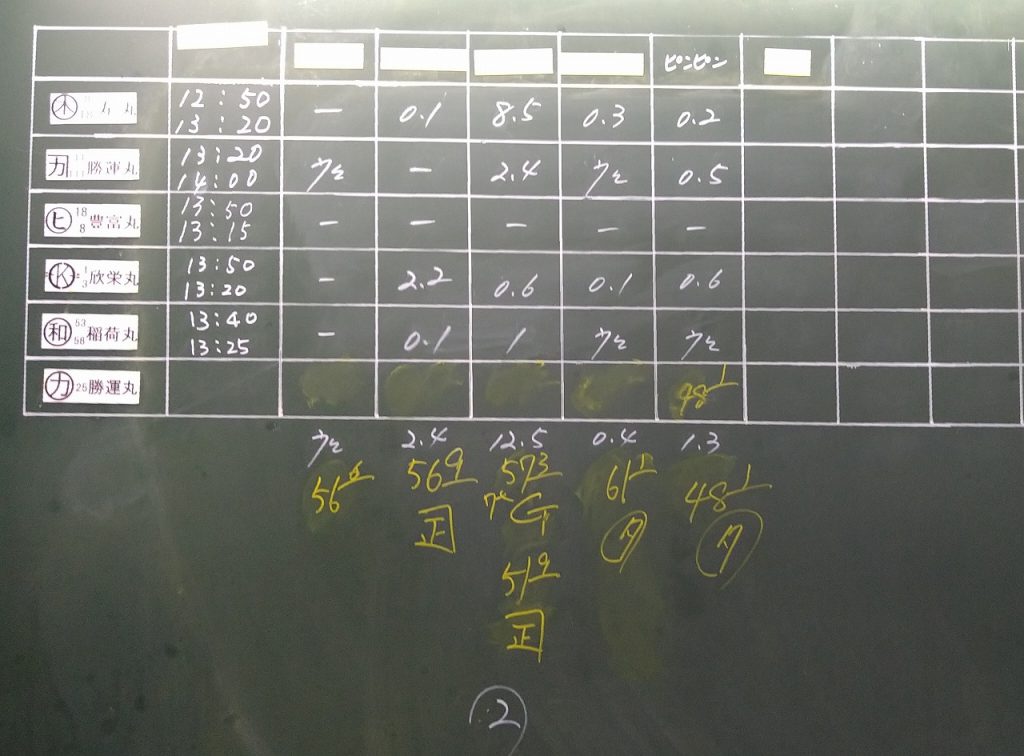 ピンピン
木 18 寿丸 12:50 13:20 — 0.1 8.5 0.3 0.2
カ 11 勝運丸 13:20 14:00 — 2.4 0.5
ヒ 18 8 豊富丸 13:50 13:15 — — — — —
K 1 3 欣栄丸 13:50 13:20 — 2.2 0.6 0.1 0.6
和 53 58 稲荷丸 13:40 13:25 — 0.1 1
カ 26 勝運丸 48 1
2.4 12.5 0.4 1.3
56 569 573 61 48 1
正 G タ タ
519
正
2